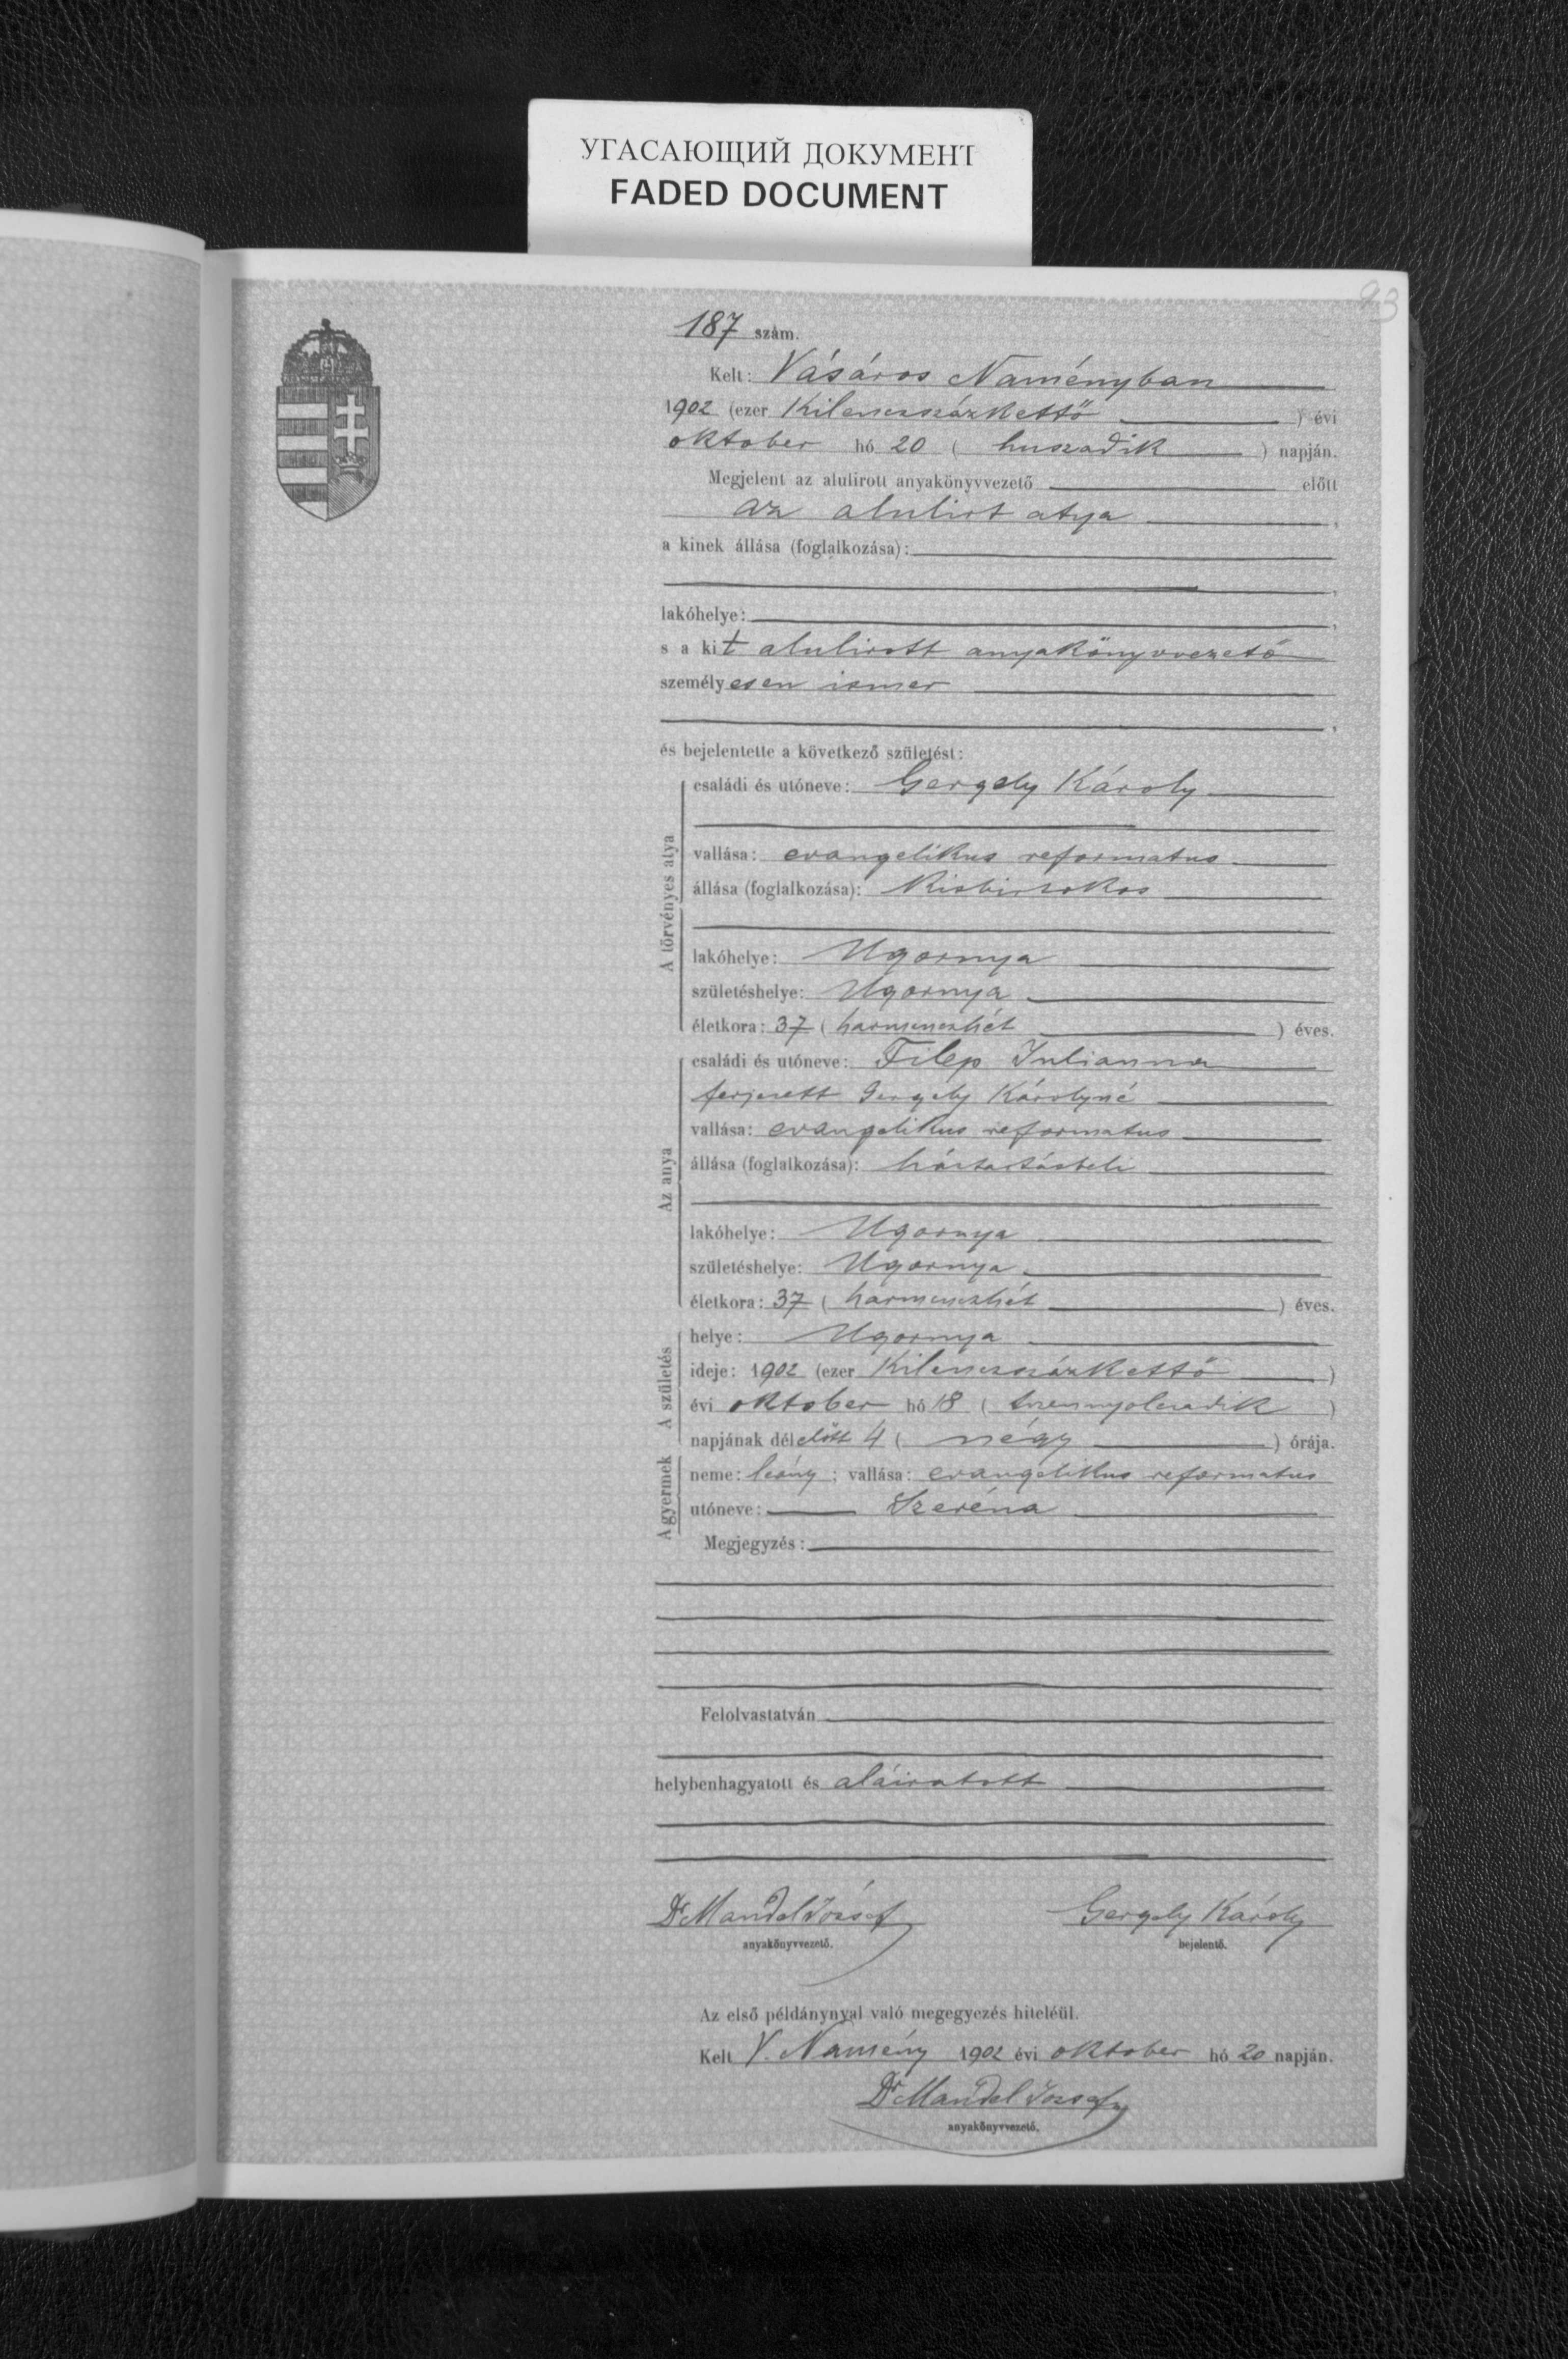 УГАСАЮЩИЙ ДОКУМЕНТ
FADED DOCUMENT
93
187 szám.
Kelt: Vásáros Naményban
1902 (ezer kilenczszázkettő ) évi
oktober hó 20 ( huszadik ) napján.
Megjelent az alulirott anyakönyvvezető előtt
az alulirt atya ,
a kinek állása (foglalkozása):
,
lakóhelye: ,
s a kit alulirott anyakönyvvezető
személyesen ismer
,
és bejelentette a következő születést:
A törvényes atya
családi és utóneve: Gergely Károly
vallása: evangelikus reformatus
állása (foglalkozása): kisbirtokos
lakóhelye: Ugornya
születéshelye: Ugornya
életkora: 37 ( harminczhét ) éves.
Az anya
családi és utóneve: Filep Julianna
ferjezett Gergely Károlyné
vallása: evangelikus reformatus
állása (foglalkozása): háztartásbeli
lakóhelye: Ugornya
születéshelye: Ugornya
életkora: 37 ( harminczhét ) éves.
A születés
helye: Ugornya
ideje: 1902 (ezer kilenczszázkettő )
évi oktober hó 18 ( tizennyolczadik )
napjának délelőtt 4 ( négy ) órája.
A gyermek
neme: leány ; vallása: evangelikus reformatus
utóneve: Szeréna
Megjegyzés:
Felolvastatván
helybenhagyatott és aláiratott
Dr Mandel József Gergely Károly
anyakönyvvezető. bejelentő.
Az első példánynyal való megegyezés hiteléül.
Kelt V. Namény 1902 évi oktober hó 20 napján.
Dr Mandel József
anyakönyvvezető.